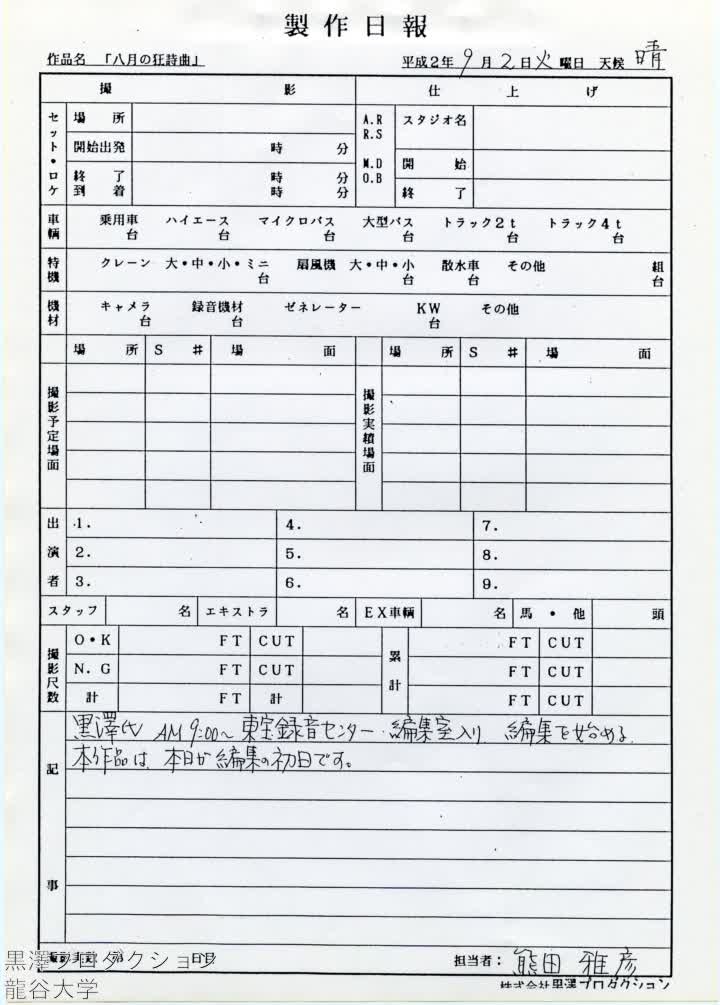 製作日報
作品名 「八月の狂詩曲」 平成2年 9月 2日 火 曜日 天候 晴
撮影 仕上げ
セット・ロケ 場所 A.R R.S M.D O.B スタジオ名
開始出発 時 分 開始
終了 時 分 終了
到着 時 分
車輌 乗用車 台 ハイエース 台 マイクロバス 台 大型バス 台 トラック2t 台 トラック4t 台
特機 クレーン 大・中・小・ミニ 台 扇風機 大・中・小 台 散水車 台 その他 組 台
機材 キャメラ 台 録音機材 台 ゼネレーター KW 台 その他
場所 S # 場面 場所 S # 場面
撮影予定場面 撮影実績場面
出演者 1. 4. 7.
2. 5. 8.
3. 6. 9.
スタッフ 名 エキストラ 名 EX車輌 名 馬・他 頭
撮影尺数 O・K FT CUT 累計 FT CUT
N.G FT CUT FT CUT
計 FT 計 FT CUT
記事
黒澤氏 AM 9:00~ 東宝録音センター・編集室入り 編集を始める.
本作品は、本日が編集の初日です。
担当者: 熊田 雅彦
株式会社黒澤プロダクション
黒澤プロダクション
龍谷大学